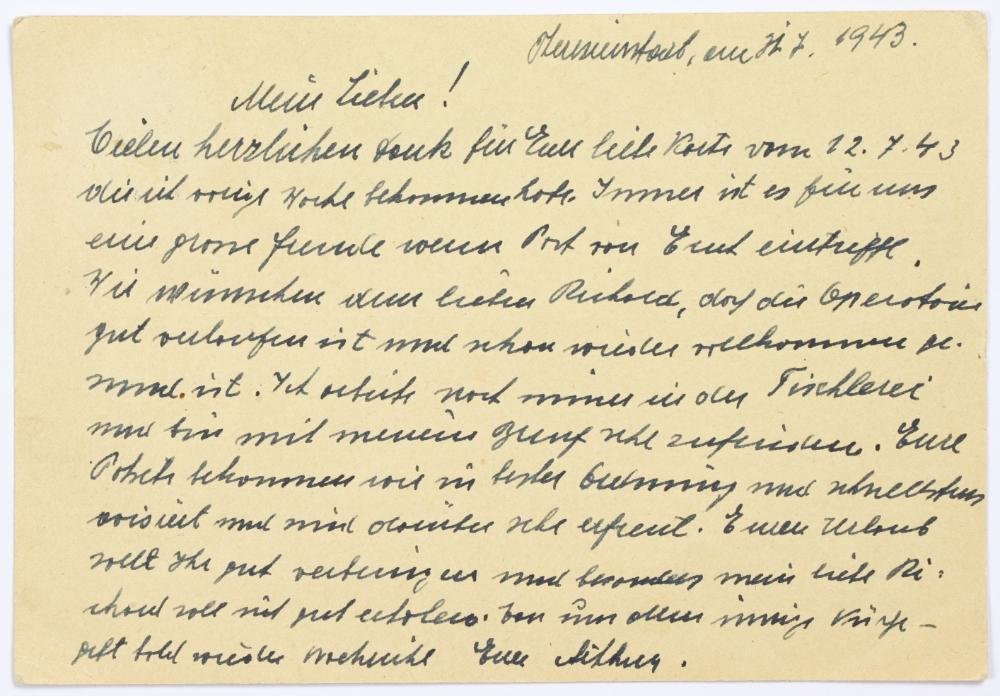 Theresienstadt, am 31.7. 1943.
Meine Lieben!
Vielen herzlichen Dank für Eure liebe Karte vom 12.7.43
die ich vorige Woche bekommen habe. Immer ist es für uns
eine grosse Freude wenn Post von Euch eintrifft.
Wir wünschen dem lieben Richard, dass die Operation
gut verlaufen ist und schon wieder vollkommen ge-
sund ist. Ich arbeite noch immer in der Tischlerei
und bin mit meinem Beruf sehr zufrieden. Eure
Pakete bekommen wir in bester Ordnung und schnellstens
avisiert und sind darüber sehr erfreut. Euren Urlaub
sollt Ihr gut verbringen und besonders mein liebe Ri-
chard soll sich gut erholen. Von uns allen innige Küsse -
gebt bald wieder Nachricht Euer Arthur.